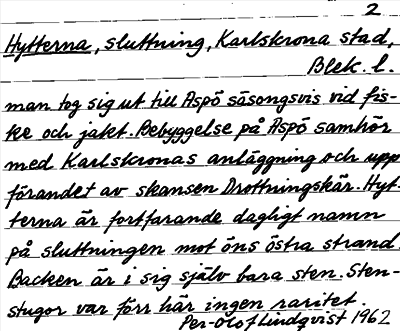 2
Hytterna, sluttning, Karlskrona stad,
Blek. l.
man tog sig ut till Aspö säsongsvis vid fis-
ke och jakt. Bebyggelse på Aspö samhör
med Karlskronas anläggning och upp
förandet av skansen Drottningskär. Hyt-
terna är fortfarande dagligt namn
på sluttningen mot öns östra strand.
Backen är i sig själv bara sten. Sten-
stugor var förr här ingen raritet.
Per-Olof Lindqvist 1962